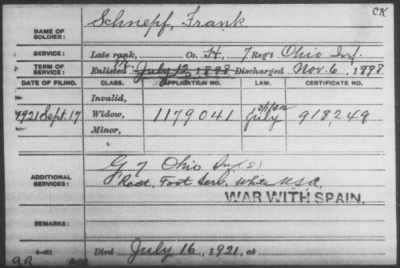 CK
NAME OF SOLDIER: Schnepf, Frank
SERVICE: Late rank, Co. H, 7 Reg't Ohio Inf.
TERM OF SERVICE: Enlisted July 12, 1898 Discharged Nov. 6, 1898
DATE OF FILING. CLASS. APPLICATION NO. LAW. CERTIFICATE NO.
Invalid,
1921 Sept. 17 Widow, 1179041 July 918,249
Minor,
ADDITIONAL SERVICES: G 7 Ohio
Foot Serv. U.S.A.
WAR WITH SPAIN.
REMARKS:
Died July 16, 1921, at